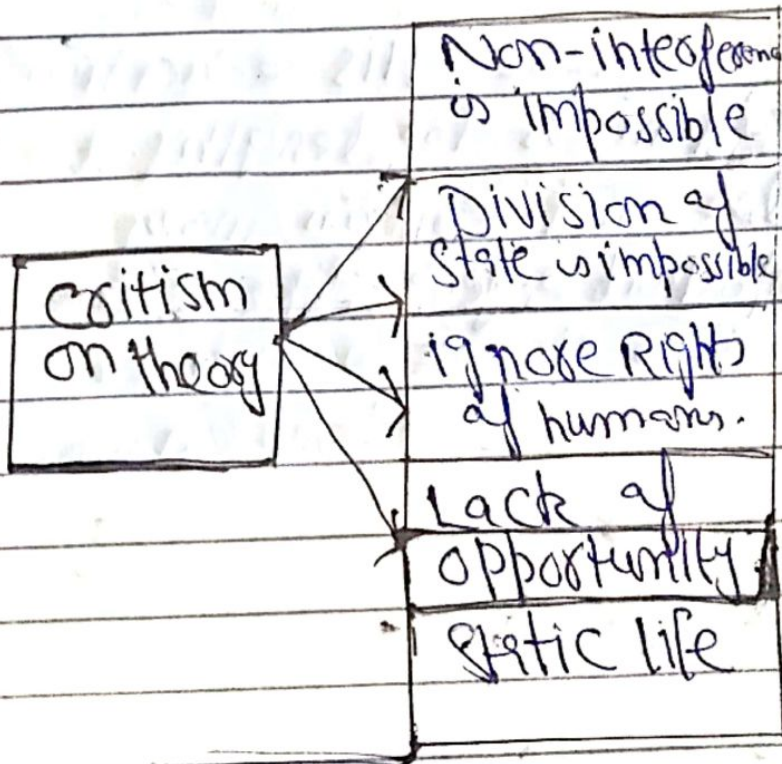 Critism
on theory
Non-interference
is impossible
Division of
State is impossible
ignore Rights
of humans.
Lack of
opportunity
Static life